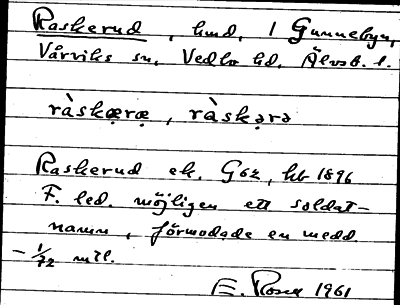 Raskerud, hmd, 1 Gunnebyn,
Vårviks sn, Vedbo hd, Älvsb. l.
ràskœrœ, ràskərə
Raskerud ek. G62, hb 1896
F. led. möjligen ett soldat-
namn, förmodade en medd.
- 1/72 mtl.
E. Rosen 1961